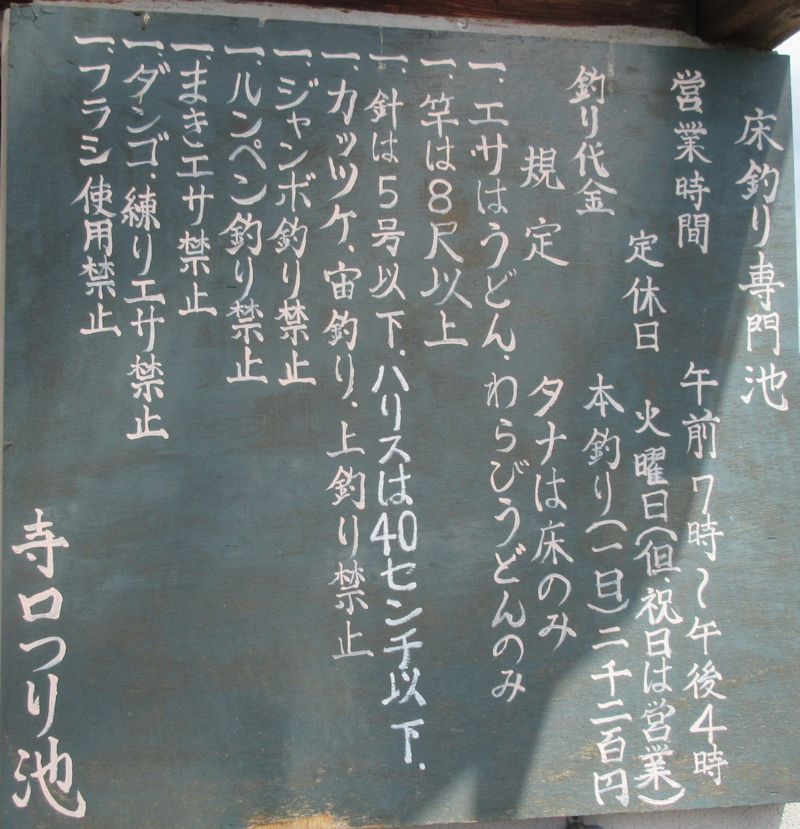 床釣り専門池
営業時間 午前7時~午後4時
定休日 火曜日(但、祝日は営業)
釣り代金 本釣り(一日)二千二百円
規定 タナは床のみ
一、エサはうどん、わらびうどんのみ
一、竿は8尺以上
一、針は5号以下、ハリスは40センチ以下、
一、カッツケ、宙釣り、上釣り禁止
一、ジャンボ釣り禁止
一、ルンペン釣り禁止
一、まきエサ禁止
一、ダンゴ、練りエサ禁止
一、フラシ使用禁止
寺口つり池